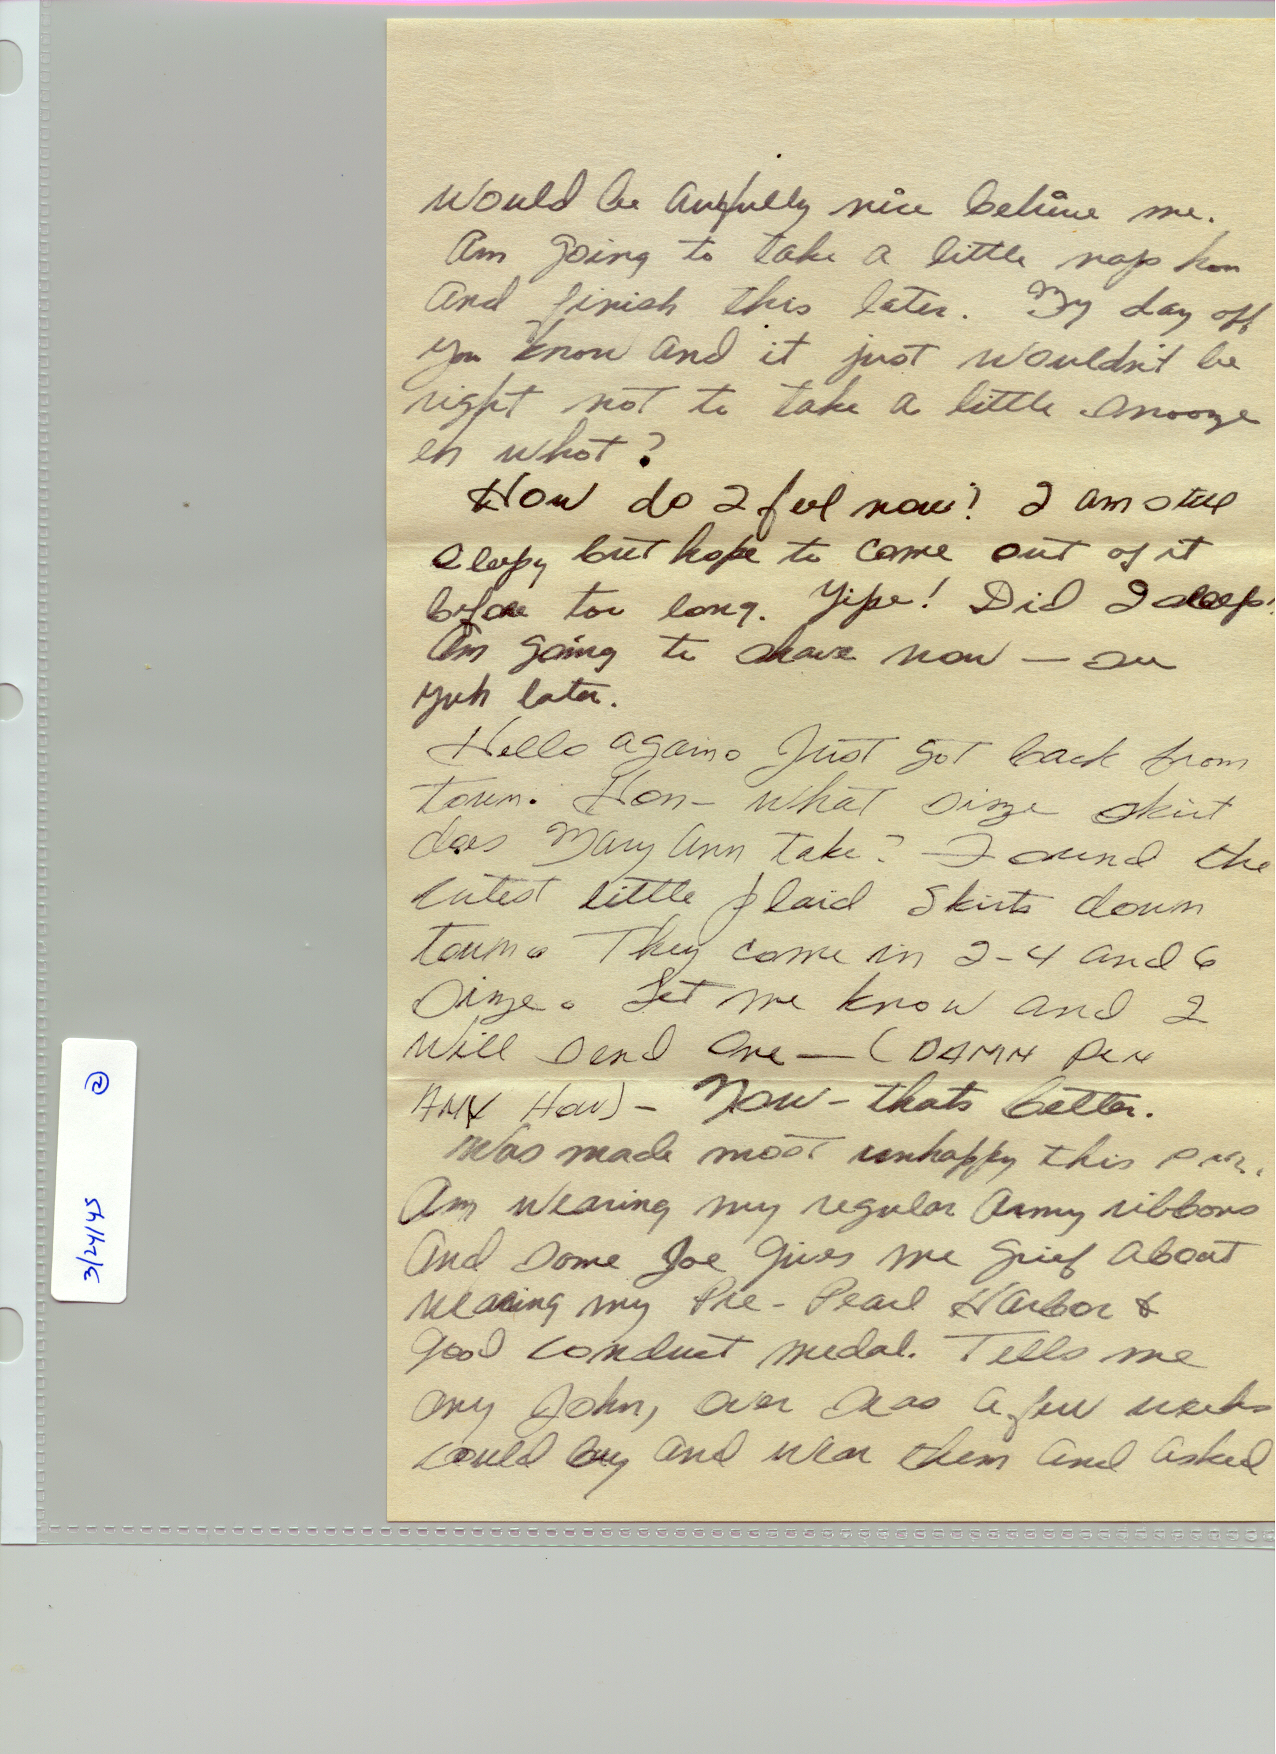 would be awfully nice believe me.
Am going to take a little nap hon
and finish this later. My day off
you know and it just wouldn't be
right not to take a little snooze
eh what?
How do I feel now? I am still
sleepy but hope to come out of it
before too long. Yipe! Did I sleep!
Am going to shave now — see
yuh later.
Hello again. Just got back from
town. Hon - what size skirt
does Mary Ann take? Found the
cutest little plaid skirts down
town. They come in 2-4 and 6
size. Let me know and I
will send one — (DAMN PEN
ANY HOW) - Now - thats better.
Was made most unhappy this
Am wearing my regular Army ribbons
and some Joe gives me grief about
wearing my Pre-Pearl Harbor &
good conduct medal. Tells me
any John, over seas a few weeks
could buy and wear them and asked
3/24/45 ②